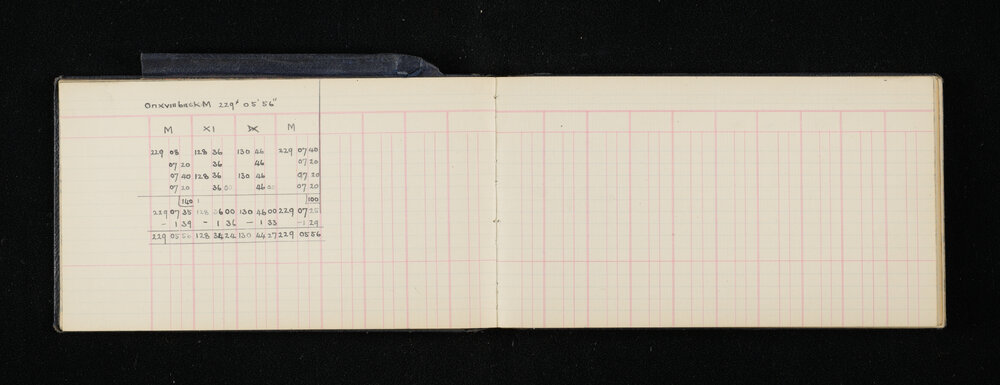 On XVIII back M 229° 05' 56"
M XI IX M
229 08 128 36 130 46 229 07 40
07 20 36 46 07 20
07 40 128 36 130 46 07 20
07 20 36 00 46 00 07 20
140 100
229 07 35 128 36 00 130 46 00 229 07 25
- 1 39 - 1 36 - 1 33 - 1 29
229 05 56 128 34 24 130 44 27 229 05 56